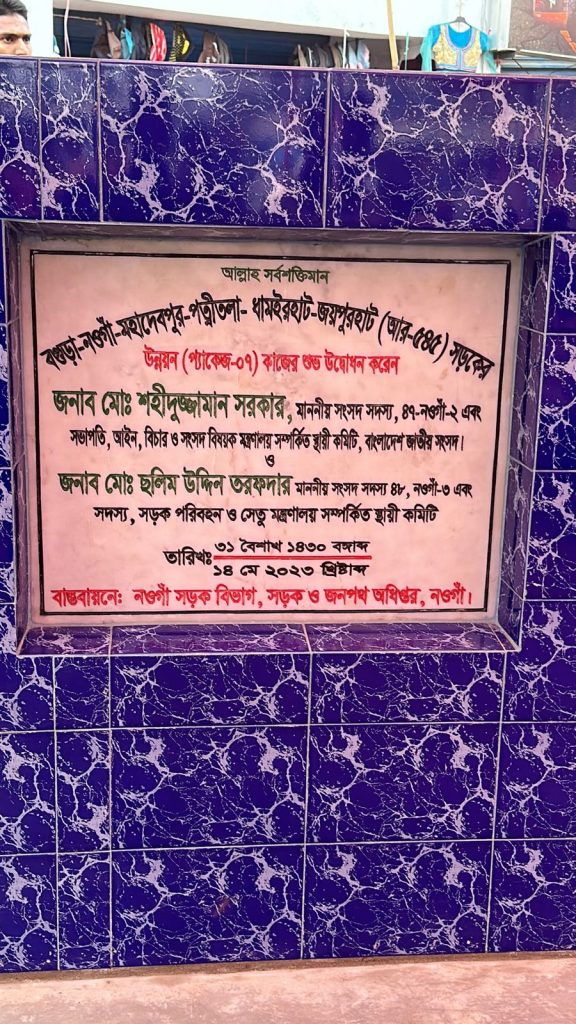 আল্লাহ সর্বশক্তিমান
বগুড়া-নওগাঁ-মহাদেবপুর-পত্নীতলা- ধামইরহাট-জয়পুরহাট (আর-৫৪৫) সড়কের
উন্নয়ন (প্যাকেজ-০৭) কাজের শুভ উদ্বোধন করেন
জনাব মোঃ শহীদুজ্জামান সরকার, মাননীয় সংসদ সদস্য, ৪৭-নওগাঁ-২ এবং
সভাপতি, আইন, বিচার ও সংসদ বিষয়ক মন্ত্রণালয় সম্পর্কিত স্থায়ী কমিটি, বাংলাদেশ জাতীয় সংসদ।
ও
জনাব মোঃ ছলিম উদ্দিন তরফদার মাননীয় সংসদ সদস্য ৪৮, নওগাঁ-৩ এবং
সদস্য, সড়ক পরিবহন ও সেতু মন্ত্রণালয় সম্পর্কিত স্থায়ী কমিটি
তারিখঃ ৩১ বৈশাখ ১৪৩০ বঙ্গাব্দ
১৪ মে ২০২৩ খ্রিষ্টাব্দ
বাস্তবায়নেঃ নওগাঁ সড়ক বিভাগ, সড়ক ও জনপথ অধিপ্তর, নওগাঁ।